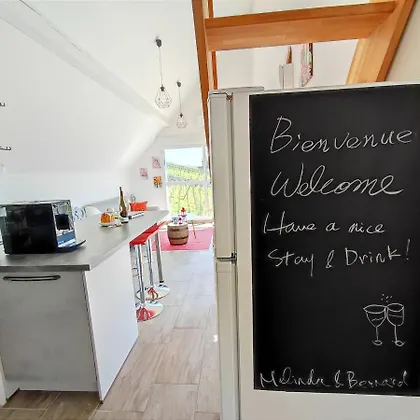 Bienvenue
Welcome
Have a nice
Stay & Drink!
& Bernard